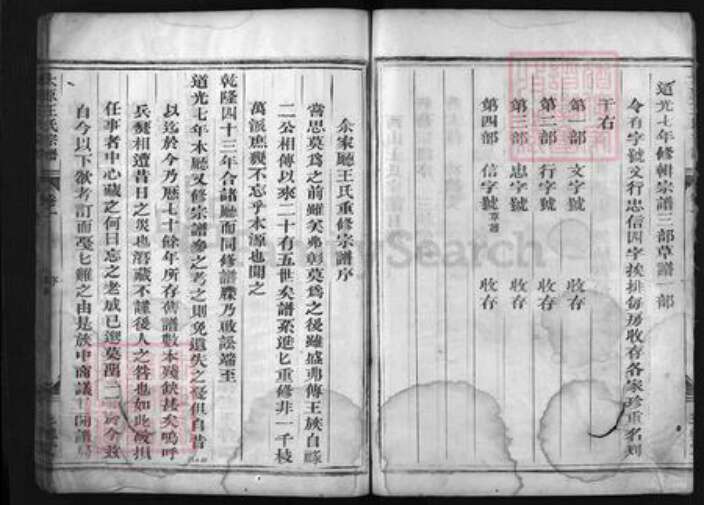 道光七年修輯宗譜三部草譜一部
今有字號文行忠信四字挨排每房收存各家珍重名列
于右
第一部 文字號 收存
第二部 行字號 收存
第三部 忠字號 收存
第四部 信字號草譜 收存
余家廳王氏重修宗譜序
嘗思莫為之前雖美弗彰莫為之後雖盛弗傳王族自
二公相傳以來二十有五世矣譜系進匕重修非一千枝
萬派庶幾不忘乎木源也聞之
乾隆四十三年合諸廳而同修譜牒乃啟訟端至
道光七年本廳又修宗譜參之考之則免遺失之憂但自昔
以迄於今乃歷七十餘年所存舊譜數本殘缺甚矣嗚呼
兵燹相遭昔日之災也潛藏不謹後人之咎也如此破損
任事者中心藏之何日忘之老成已邈莫溯一二於今茲
自今以下欲考訂而憂匕難之由是族中商議